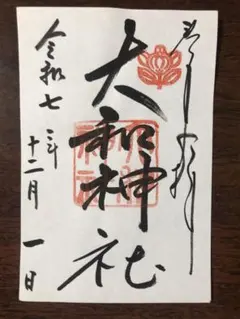 奉拝
大和神社
令和七年
十二月一日